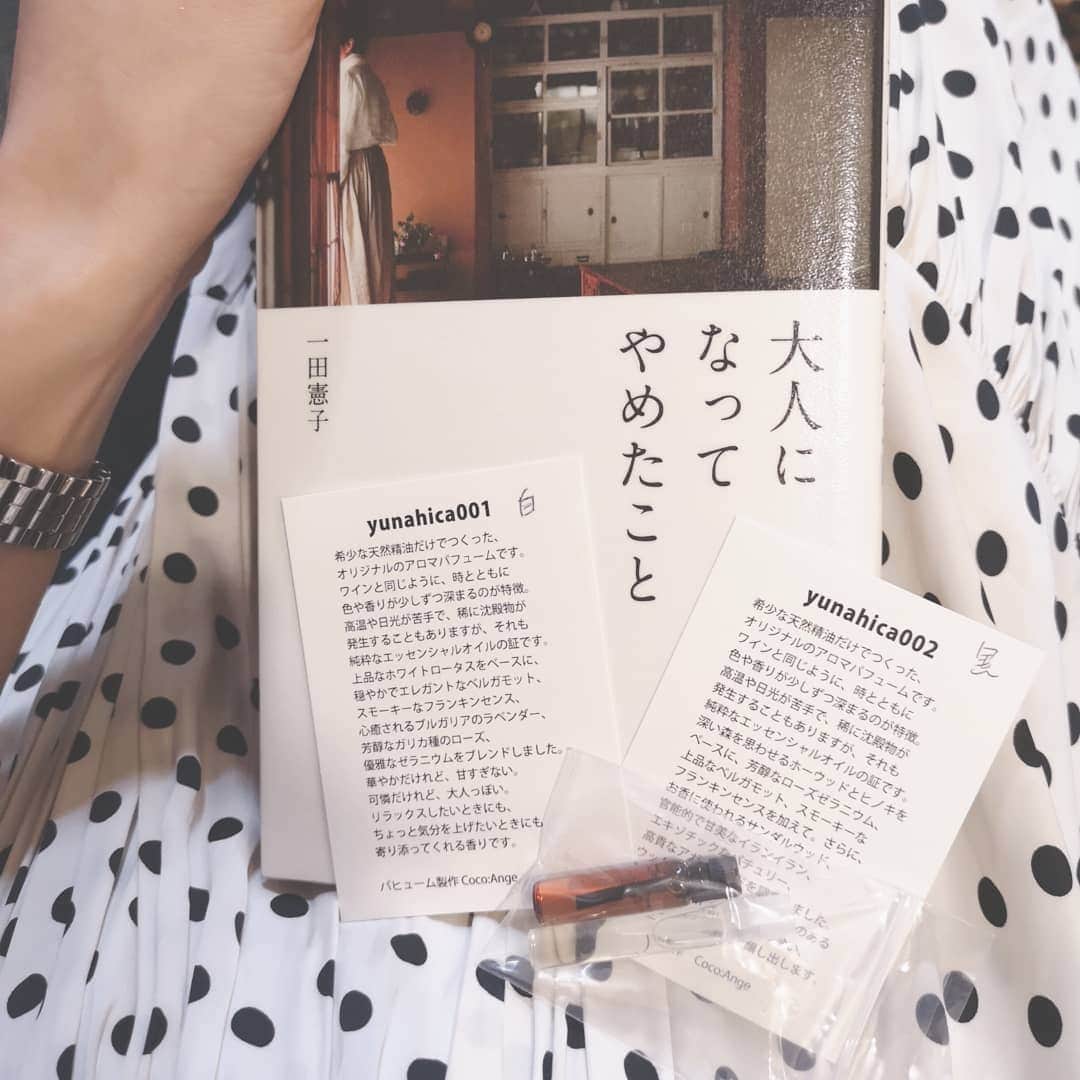 大人に
なって
やめたこと
一田憲子
yunahica001 白
希少な天然精油だけでつくった、
オリジナルのアロマパフュームです。
ワインと同じように、時とともに
色や香りが少しずつ深まるのが特徴。
高温や日光が苦手で、稀に沈殿物が
発生することもありますが、それも
純粋なエッセンシャルオイルの証です。
上品なホワイトロータスをベースに、
穏やかでエレガントなベルガモット、
スモーキーなフランキンセンス、
心癒されるブルガリアのラベンダー、
芳醇なガリカ種のローズ、
優雅なゼラニウムをブレンドしました。
華やかだけれど、甘すぎない。
可憐だけれど、大人っぽい。
リラックスしたいときにも、
ちょっと気分を上げたいときにも
寄り添ってくれる香りです。
パヒューム製作 Coco:Ange
yunahica002 黒
希少な天然精油だけでつくった、
オリジナルのアロマパフュームです。
ワインと同じように、時とともに
色や香りが少しずつ深まるのが特徴。
高温や日光が苦手で、稀に沈殿物が
発生することもありますが、それも
純粋なエッセンシャルオイルの証です。
深い森を思わせるホーウッドとヒノキを
ベースに、芳醇なローズゼラニウム、
上品なベルガモット、スモーキーな
フランキンセンスを加えて。さらに、
お香に使われるサンダルウッド、
官能的で甘美なイランイラン、
エキゾチックなパチュリー、
高貴なア
ウッ
ました。
のある
醸し出します。
Coco:Ange